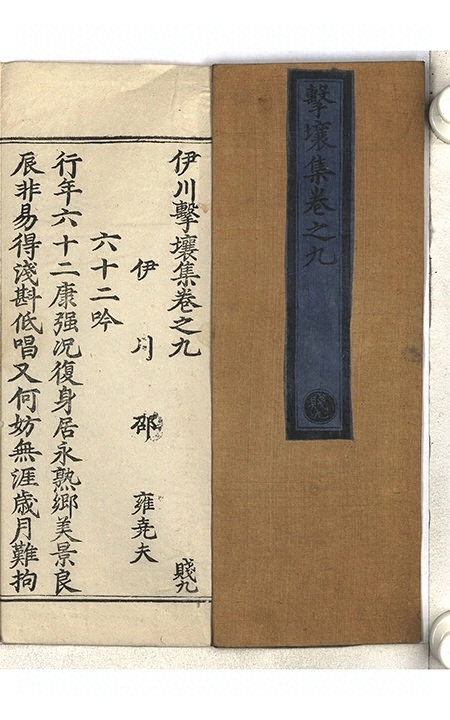 擊壤集卷之九
賤九
伊川擊壤集卷之九
賤九
伊川邵雍堯夫
六十二吟
行年六十二康强况復身居永熟鄉美景良
辰非易得淺斟低唱又何妨無涯歲月難拘